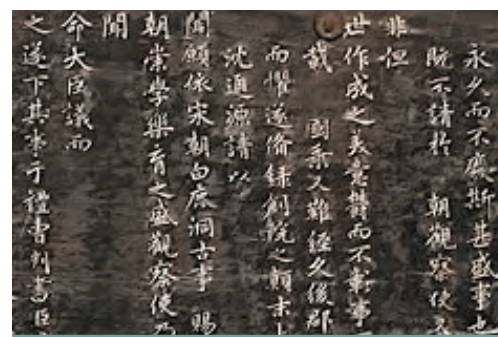 永久而不廢斯甚盛事也
既不請於 朝觀察使又
非但
世作成之美意替而不彰事
哉 國乘又難經久後郡
而懼遂備錄創就之顛末上
沈通源請以
聞願依宋朝白鹿洞古事 賜
朝崇學樂育之盛觀察使乃
聞
命大臣議而
之遂下其事于禮曹判書臣